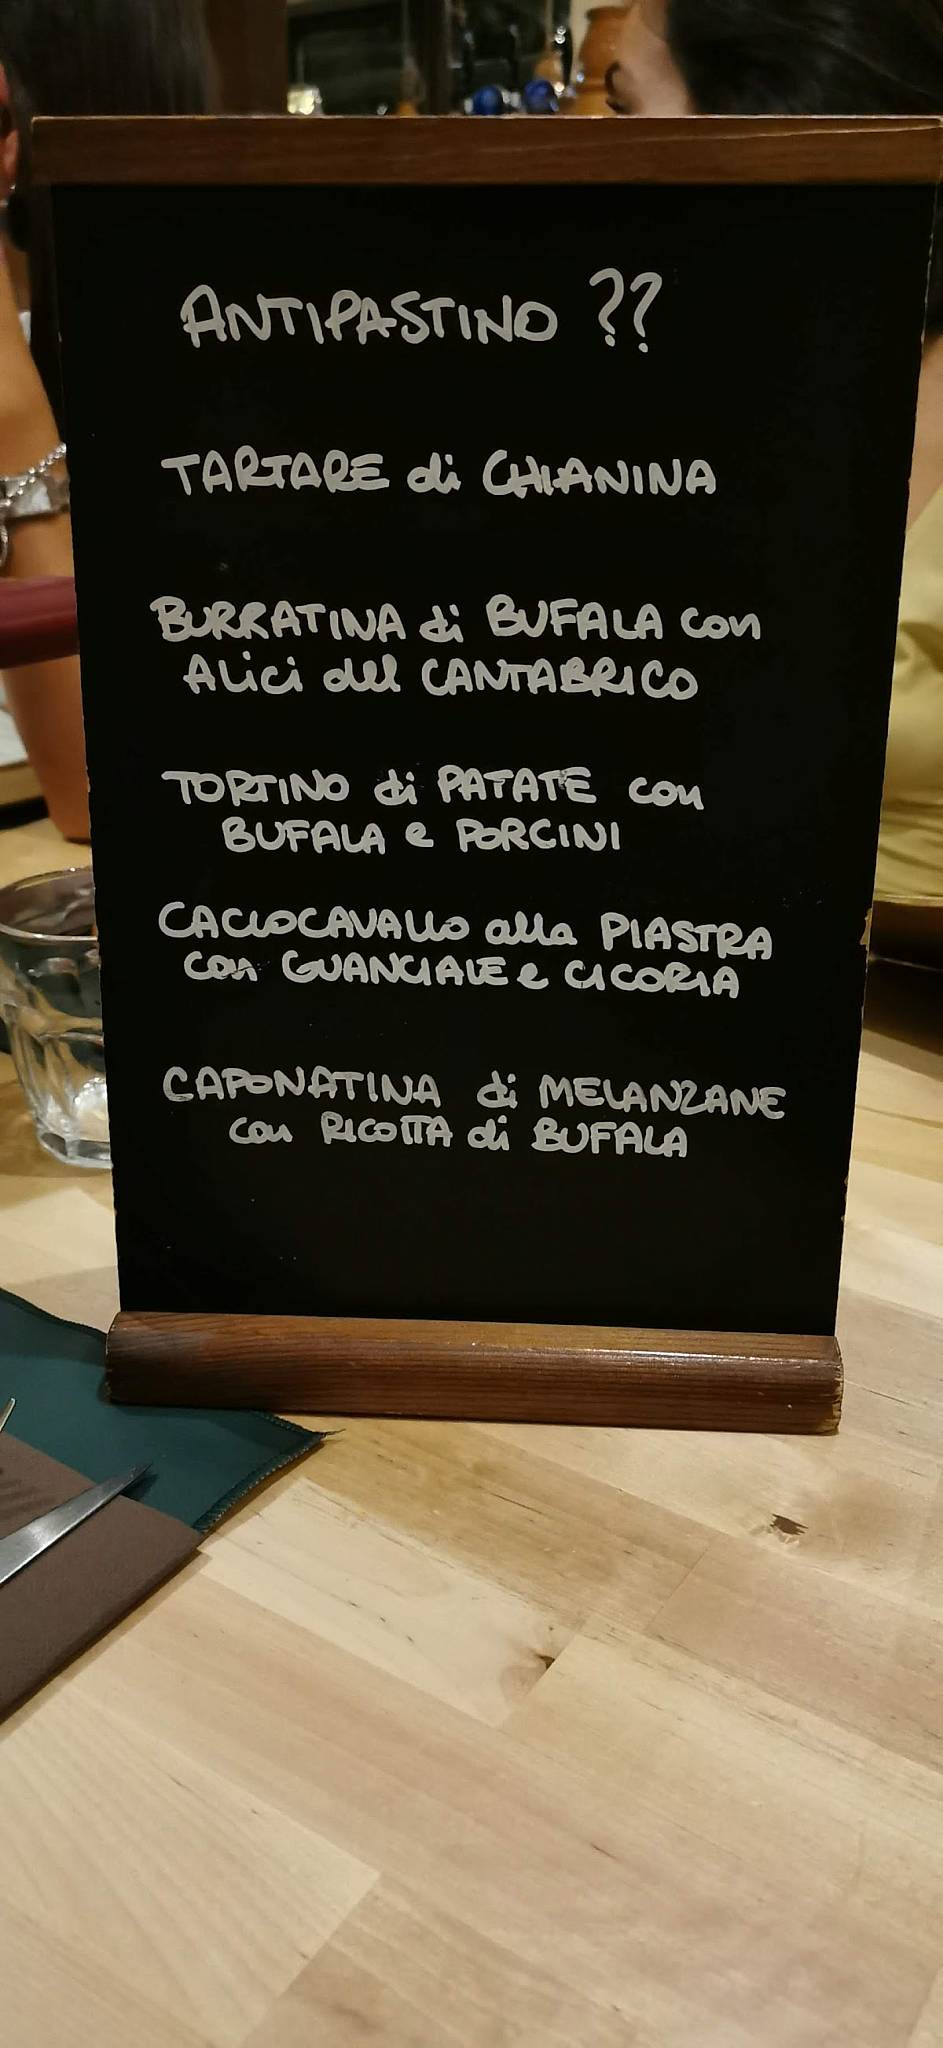 ANTIPASTINO ??
TARTARE di CHIANINA
BURRATINA di BUFALA con
Alici del CANTABRICO
TORTINO di PATATE con
BUFALA e PORCINI
CACIOCAVALLO alla PIASTRA
con GUANCIALE e CICORIA
CAPONATINA di MELANZANE
con RICOTTA di BUFALA